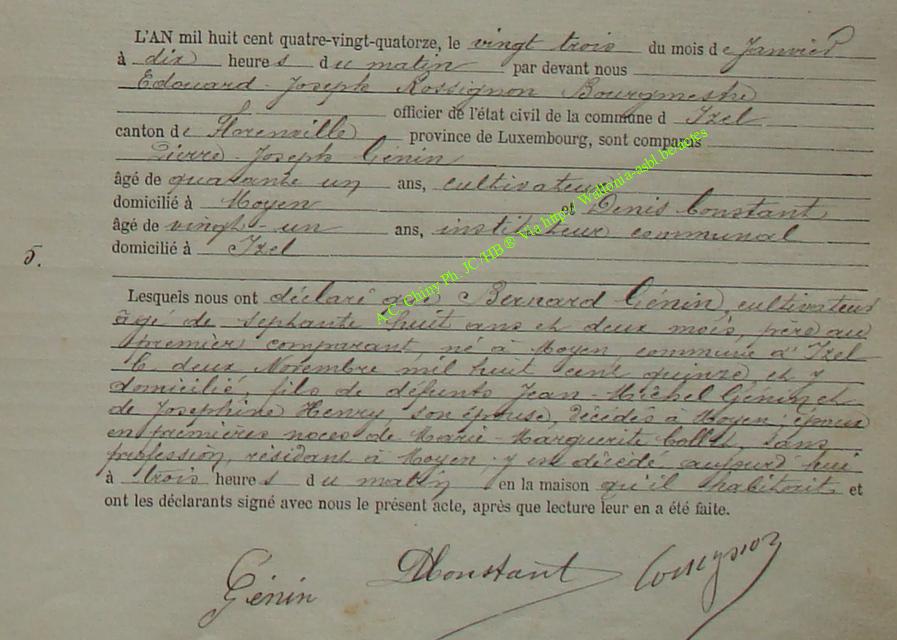 L'AN mil huit cent quatre-vingt-quatorze, le vingt trois du mois de Janvier
à dix heures du matin par devant nous
Edouard-Joseph Rossignon Bourgmestre
officier de l'état civil de la commune d Izel
canton de Florenville province de Luxembourg, sont comparus
Pierre-Joseph Génin
âgé de quarante un ans, cultivateur
domicilié à Moyen et Denis Constant
âgé de vingt-un ans, instituteur communal
domicilié à Izel
5.
Lesquels nous ont déclaré que Bernard Génin, cultivateur
âgé de septante huit ans et deux mois, père au
premier comparant, né à Moyen, commune d'Izel
le deux Novembre mil huit cent quinze et y
domicilié, fils de défunts Jean-Michel Génin et
de Joséphine Henry son épouse, décédés à Moyen; époux
en premières noces de Marie-Marguerite sans
profession, résidant à Moyen; y est décédé aujourd'hui
à trois heures du matin en la maison qu'il habitait et
ont les déclarants signé avec nous le présent acte, après que lecture leur en a été faite.
Génin DConstant
A.C. Chiny Ph. JC/HB® Via http:// Wallonia-asbl.be/actes